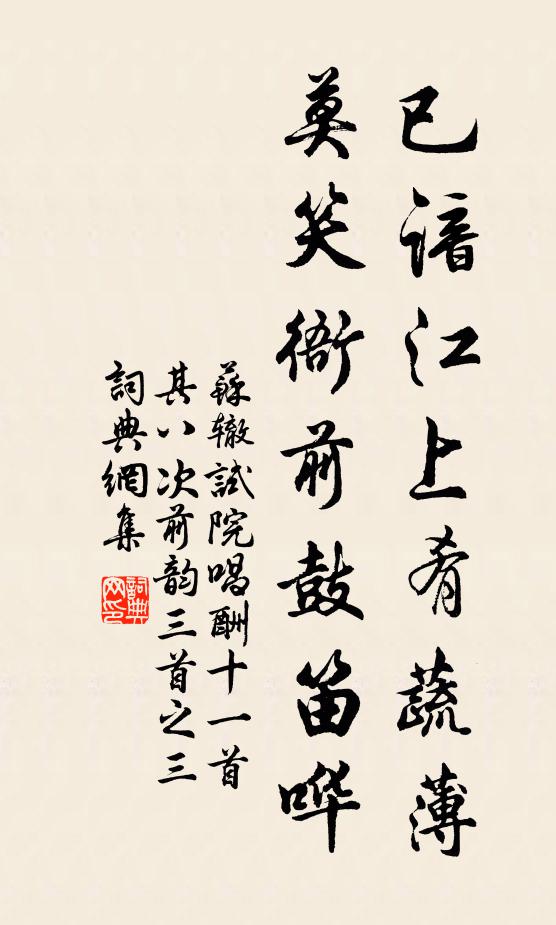 已谙江上肴蔬薄
莫笑衙前鼓笛哗
蘇辙試院唱酬十一首
其八次前韵三首之三
詞典網集
詞典网印